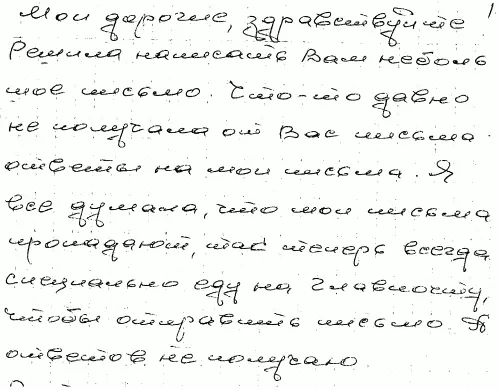 Мои дорогие, здравствуйте 1
Решила написать Вам неболь
шое письмо. Что-то давно
не получала от Вас письма
ответы на мои письма. Я
все думала, что мои письма
пропадают, так теперь всегда
специально еду на Главпочту,
чтобы отправить письмо. А
ответов не получаю.